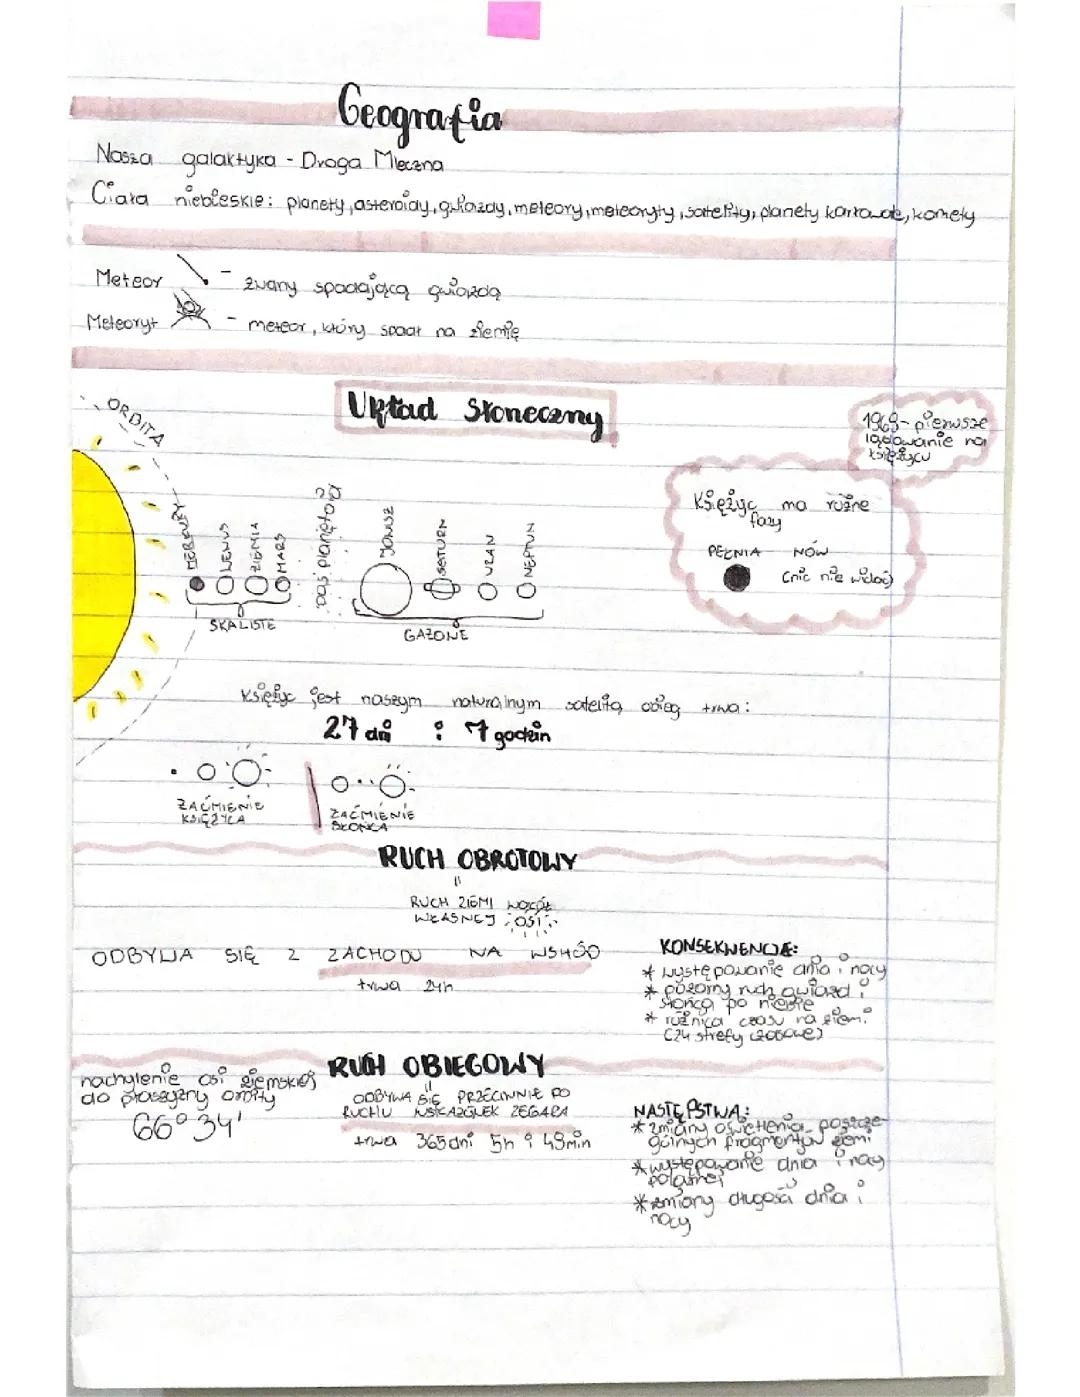 Geografia
Nasza galaktyka - Droga Mleczna
Ciała niebieskie: planety, asteroidy, gwiazdy, meteory, meteoryty, satelity, planety karłowate, komety
Meteor - zwany spadającą gwiazdą
Meteoryt - meteor, który spadł na ziemię
Układ Słoneczny
ORBITA
1969 - pierwsze
lądowanie na
księżycu
Księżyc ma różne
fazy
PEŁNIA NÓW
(nic nie widać)
MERKURY
WENUS
ZIEMIA
MARS
pas planetoid
JOWISZ
SATURN
URAN
NEPTUN
SKALISTE
GAZOWE
Księżyc jest naszym naturalnym satelitą obieg trwa:
27 dni i 7 godzin
ZAĆMIENIE
KSIĘŻYCA
ZAĆMIENIE
SŁOŃCA
RUCH OBROTOWY
=
RUCH ZIEMI WOKÓŁ
WŁASNEJ OSI
ODBYWA SIĘ Z ZACHODU NA WSHÓD
trwa 24h
KONSEKWENCJE:
* występowanie dnia i nocy
* pozorny ruch gwiazd i
słońca po niebie
* różnica czasu na ziemi
(24 strefy czasowe)
RUCH OBIEGOWY
=
ODBYWA SIĘ PRZECIWNIE DO
RUCHU WSKAZÓWEK ZEGARA
trwa 365 dni 5h i 48min
nachylenie osi ziemskiej
do płaszczyzny orbity
66°34'
NASTĘPSTWA:
* zmiany oświetlenia poszcze-
gólnych fragmentów ziemi
* występowanie dnia i nocy
polarnej
* zmiany długości dnia i
nocy